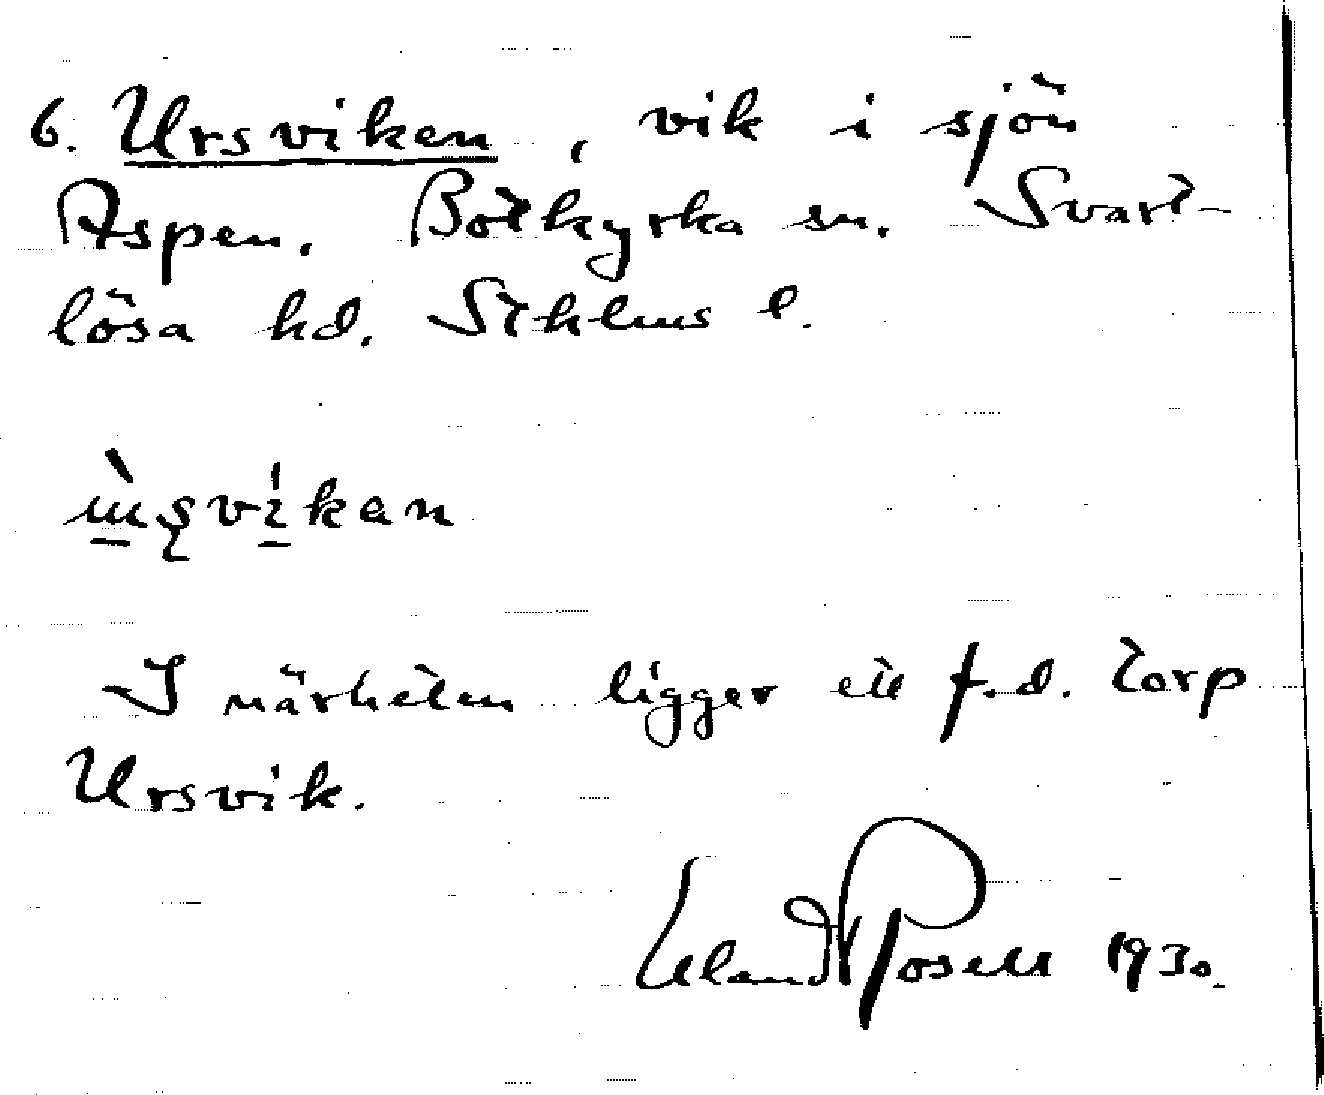 6. Ursviken, vik i sjön
Aspen. Botkyrka sn. Svart-
lösa hd. Sthlms l.
I närheten ligger ett f.d. torp
Ursvik.
Erland Rosell 1930.